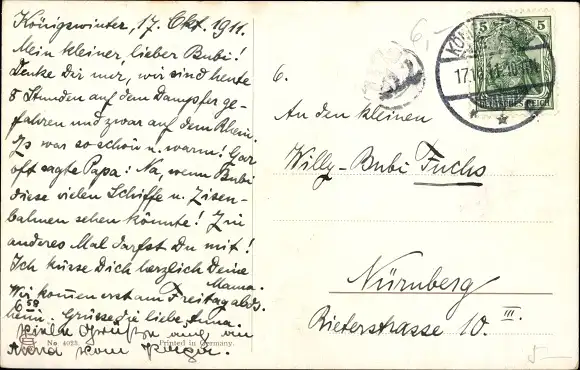 Königswinter, 17. Okt. 1911.
Mein kleiner, lieber Bubi!
Denke Dir nur, wir sind heute
8 Stunden auf dem Dampfer ge-
fahren und zwar auf dem Rhein.
Es war so schön u. warm! Gar
oft sagte Papa: Na, wenn Bubi
diese vielen Schiffe u. Eisen-
bahnen sehen könnte! Ein
anderes Mal darfst Du mit!
Ich küsse Dich herzlich Deine
Mama.
Wir kommen erst am Freitag abds.
6 58 heim. Grüsse die liebe Anna.
Viele Grüße
No 4023. Printed in Germany.
6,-
6.
An den kleinen
Willy-Bubi Fuchs
Nürnberg
Bieterstrasse 10. III.
5
5